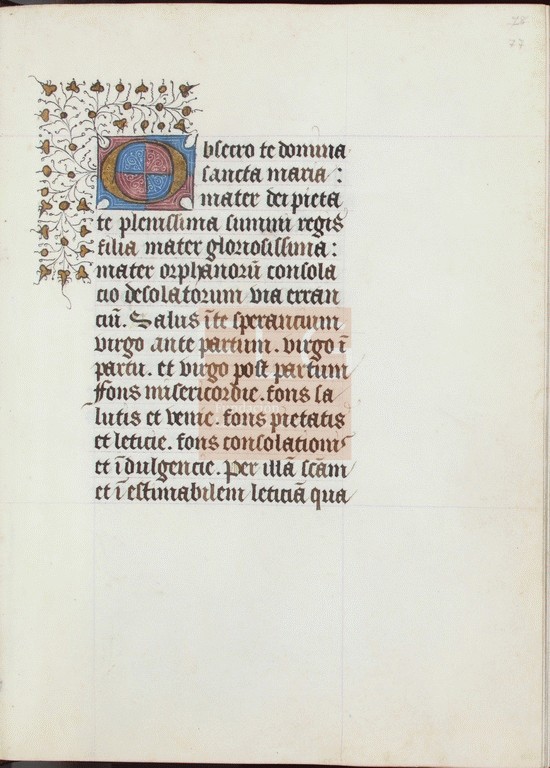 78
77
Obsecro te domina
sancta maria :
mater dei pieta
te plenissima summi regis
filia mater gloriosissima :
mater orphanorū consola
cio desolatorum via erran
ciū. Salus īte sperancium
virgo ante partum. virgo ī
partu. et virgo post partum
fons misericordie. fons sa
lutis et venie. fons pietatis
et leticie. fons consolationis
et īdulgencie. Per illā scām
et ī estimabilem leticiā qua